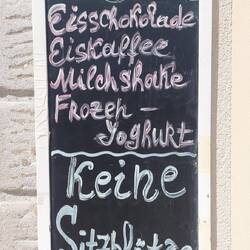 Eisschokolade
Eiskaffee
Milchshake
Frozen -
Yoghurt
Keine
Sitzplätze